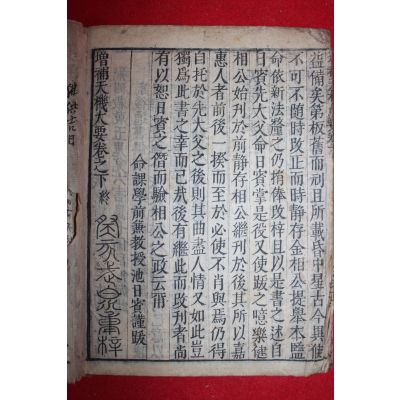 益備矣第板舊而刓且所載昏中星古今異候
不可不隨時改正而時靜存金相公提擧本監
命依新法釐之仍捐俸改梓且以是書之述自
日賓先大父命日賓掌是役又使跋之噫樂健
相公始刊於前靜存相公繼刊於後其所以嘉
惠人者前後一揆而至於必使不肖與焉仍得
自托於先大父之後則其曲盡人情又如此豈
獨爲此書之幸而已哉後有繼此而改刊者尙
有以恕日賓之僭而驗相公之政云爾
命課學前兼敎授池日賓謹跋
增補天機大要卷之下終